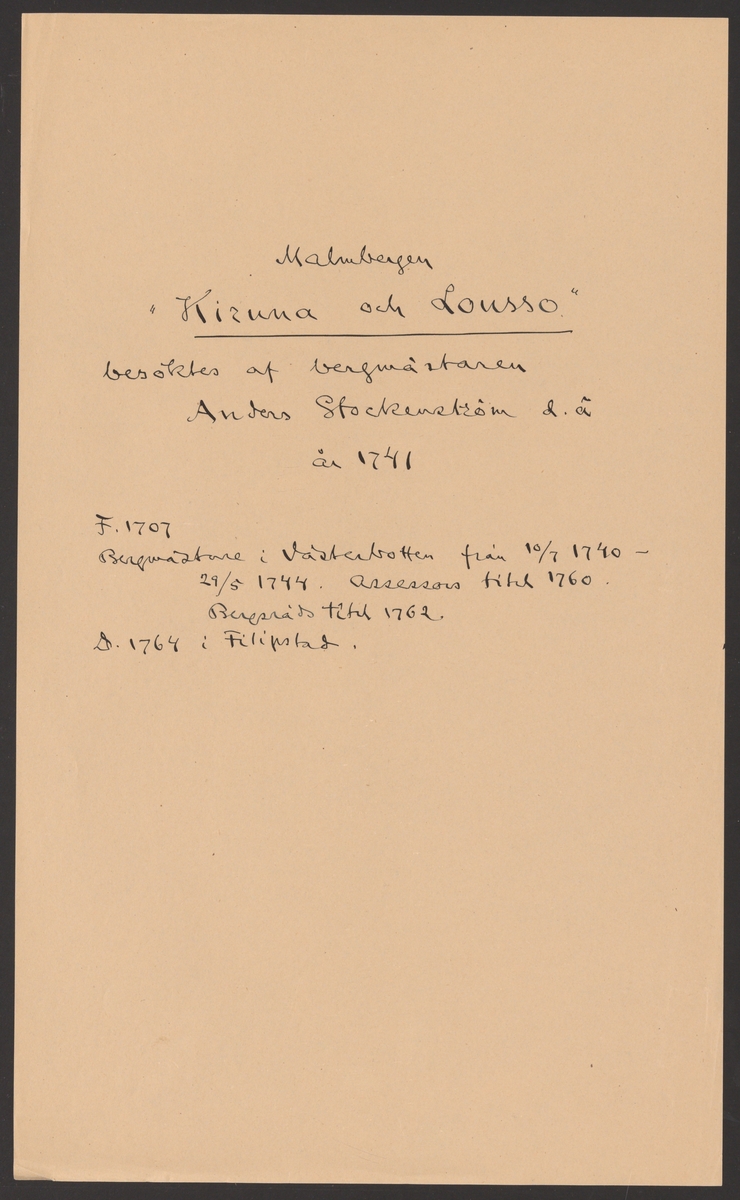 Malmbergen
"Kiruna och Lousso."
besöktes af bergmästaren
Anders Stockenström d. ä
år 1741
F. 1707
Bergmästare i Västerbotten från 10/7 1740 –
29/5 1744. Assessors titel 1760.
Bergsråds titel 1762.
D. 1764 i Filipstad.